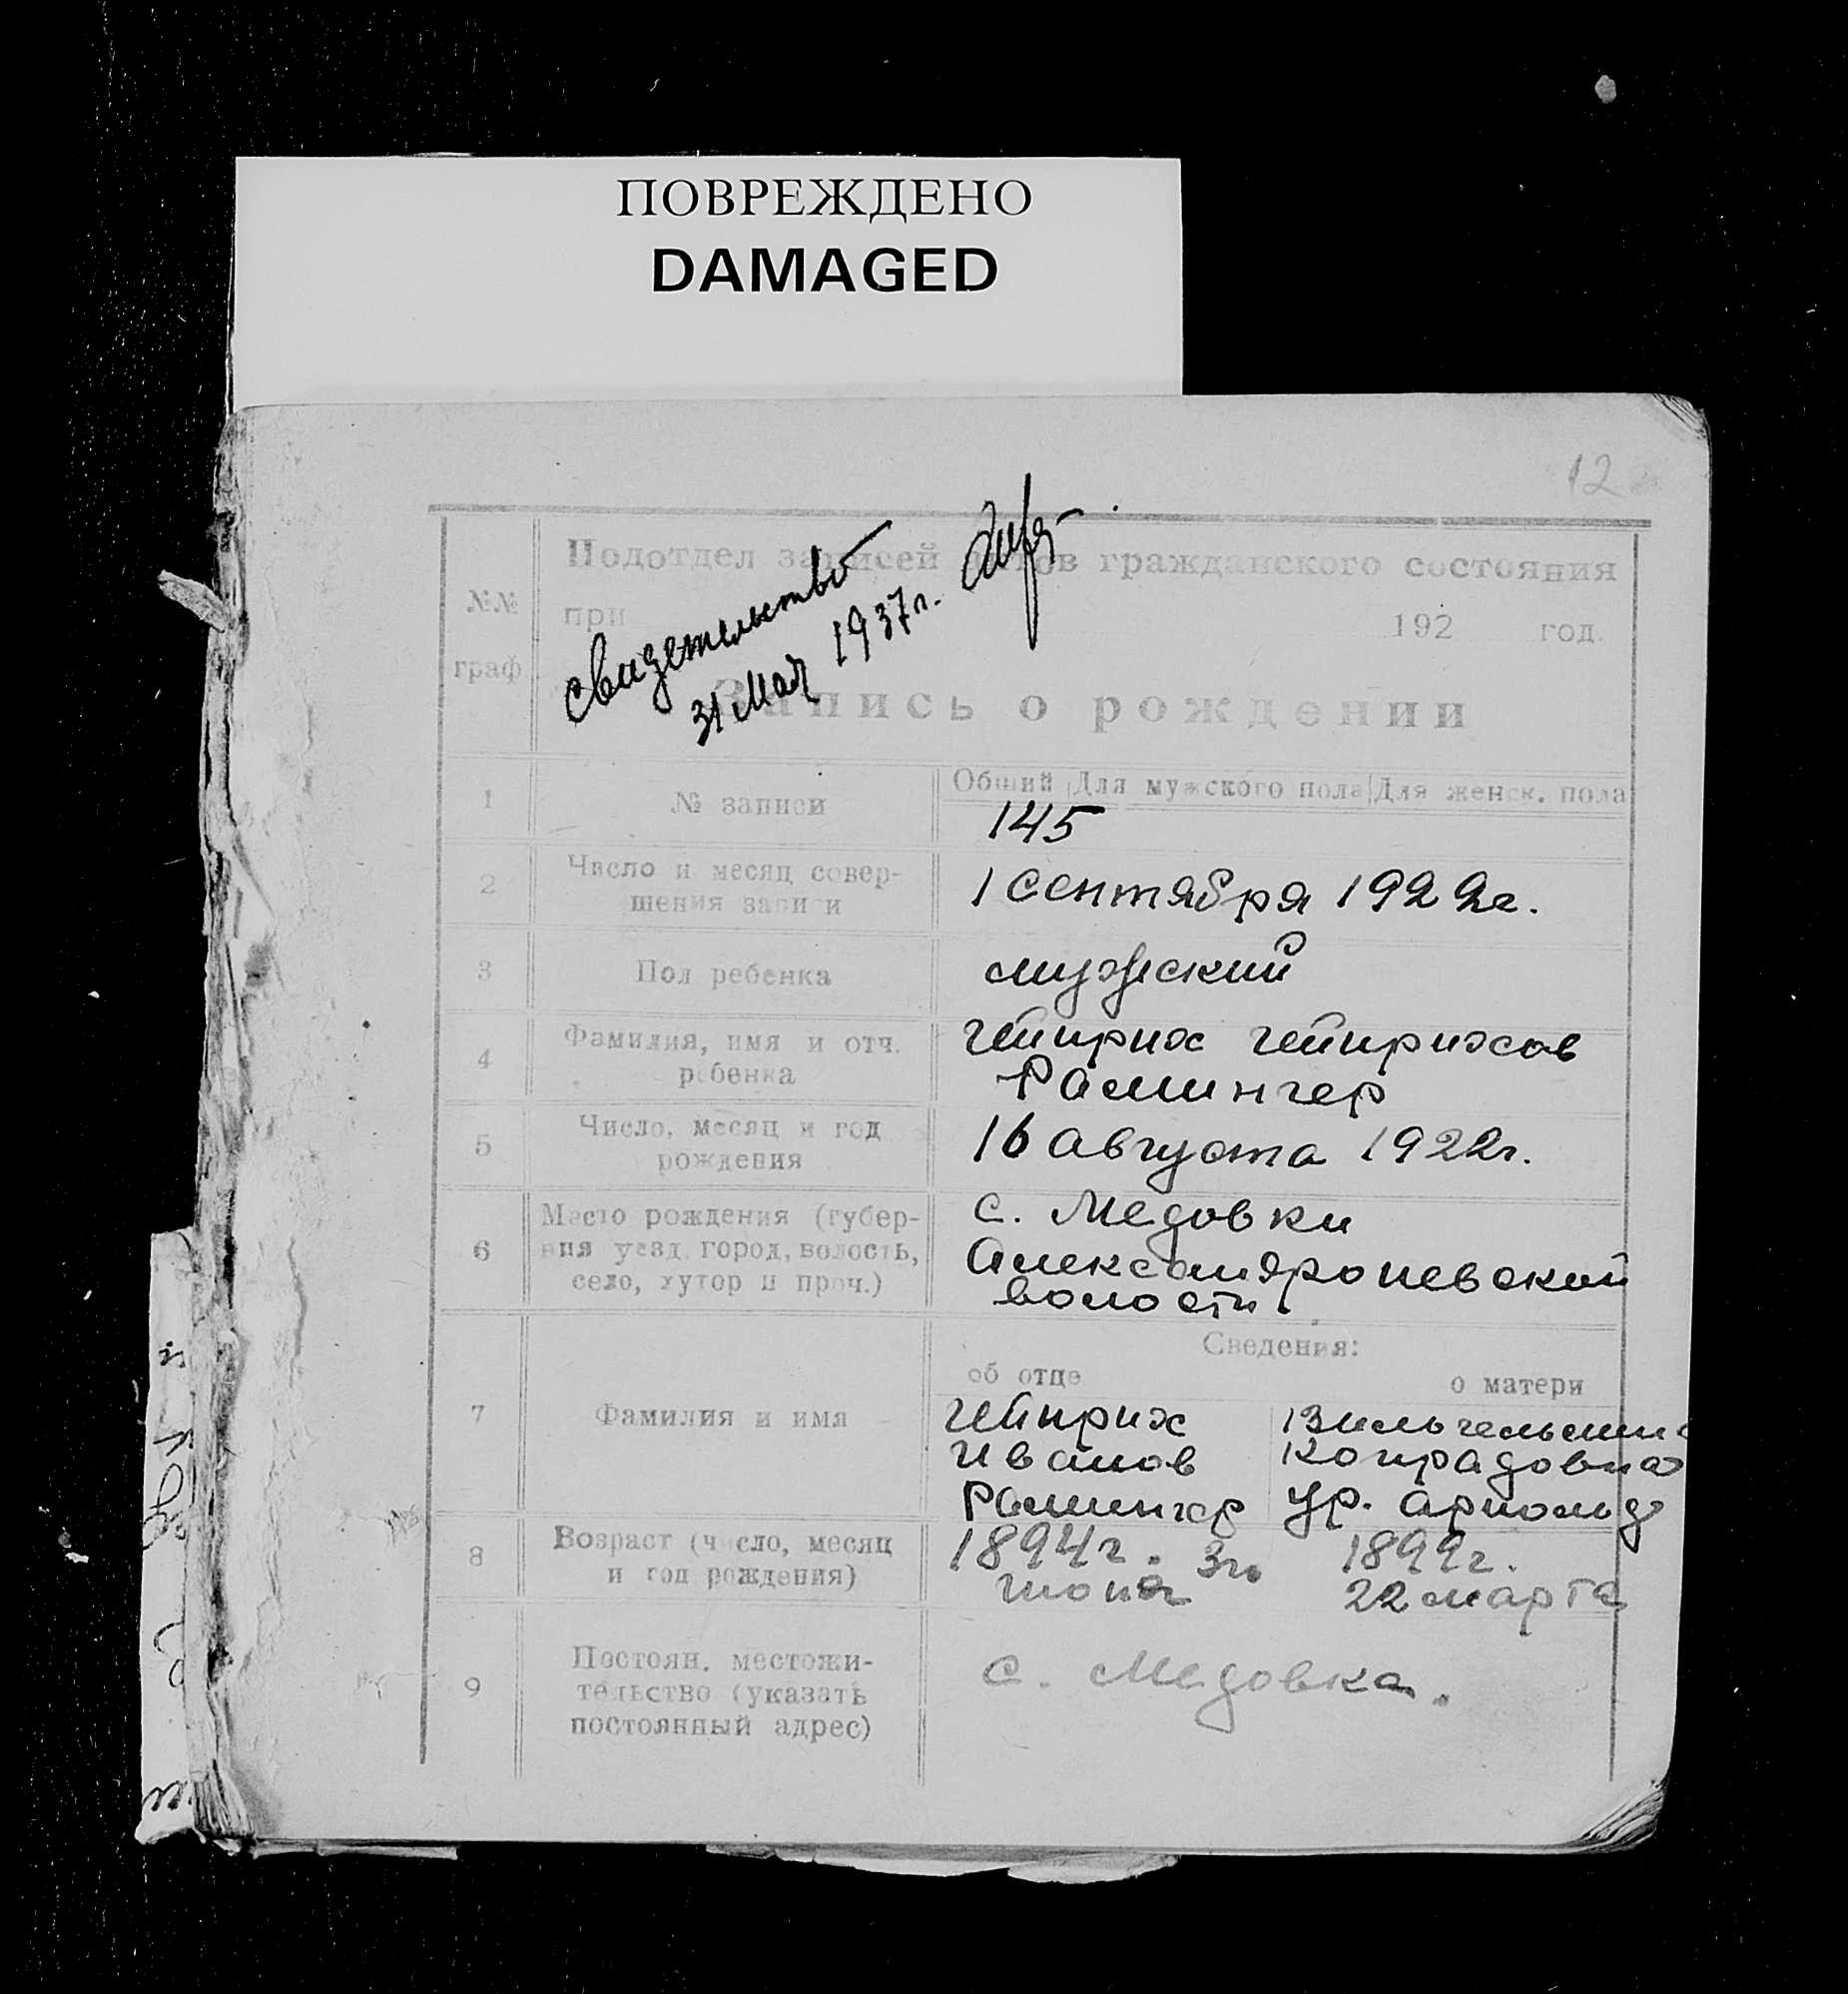 ПОВРЕЖДЕНО
DAMAGED
12
№№
граф
Подотдел записей актов гражданского состояния
при 192 год.
свидетельство
31 Мая 1937г.
Запись о рождении
1
№ записи
Общий Для мужского пола Для женск. пола
145
2
Число и месяц совер-
шения записи
1 сентября 1922г.
3
Пол ребенка
мужской
4
Фамилия, имя и отч.
ребенка
Гейнрих Гейнрихов
Рамингер
5
Число, месяц и год
рождения
16 августа 1922г.
6
Место рождения (губер-
ния уезд, город, волость,
село, хутор и проч.)
с. Медовки
Александроневской
волости
Сведения:
об отце
о матери
7
Фамилия и имя
Гейнрих
Иванов
Рамингер
Вильгельмин
Конрадовна
ур. Арнольд
8
Возраст (число, месяц
и год рождения)
1894г. 3го
1899г.
22 марта
9
Постоян. местожи-
тельство (указать
постоянный адрес)
с. Медовка.